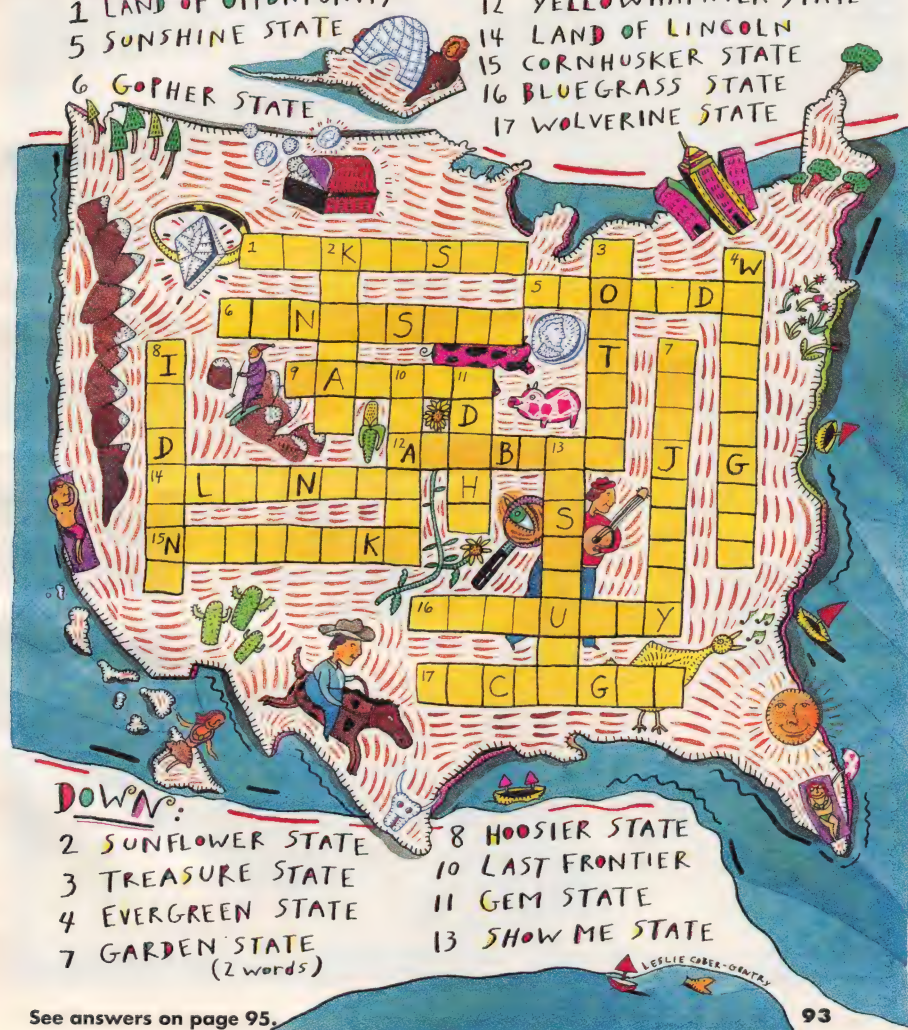 1 LAND OF OPPORTUNITY
5 SUNSHINE STATE
6 GOPHER STATE
12 YELLOWHAMMER STATE
14 LAND OF LINCOLN
15 CORNHUSKER STATE
16 BLUEGRASS STATE
17 WOLVERINE STATE
1 2 K S 3 4 W
5 O D
6 N S
8 I T 7
9 A 10 11
D
12 A B 13
D J G
14 L N H
S
15 N K
16 U Y
17 C G
DOWN:
2 SUNFLOWER STATE
3 TREASURE STATE
4 EVERGREEN STATE
7 GARDEN STATE
(2 words)
8 HOOSIER STATE
10 LAST FRONTIER
11 GEM STATE
13 SHOW ME STATE
LESLIE COBER-GENTRY
See answers on page 95.
93